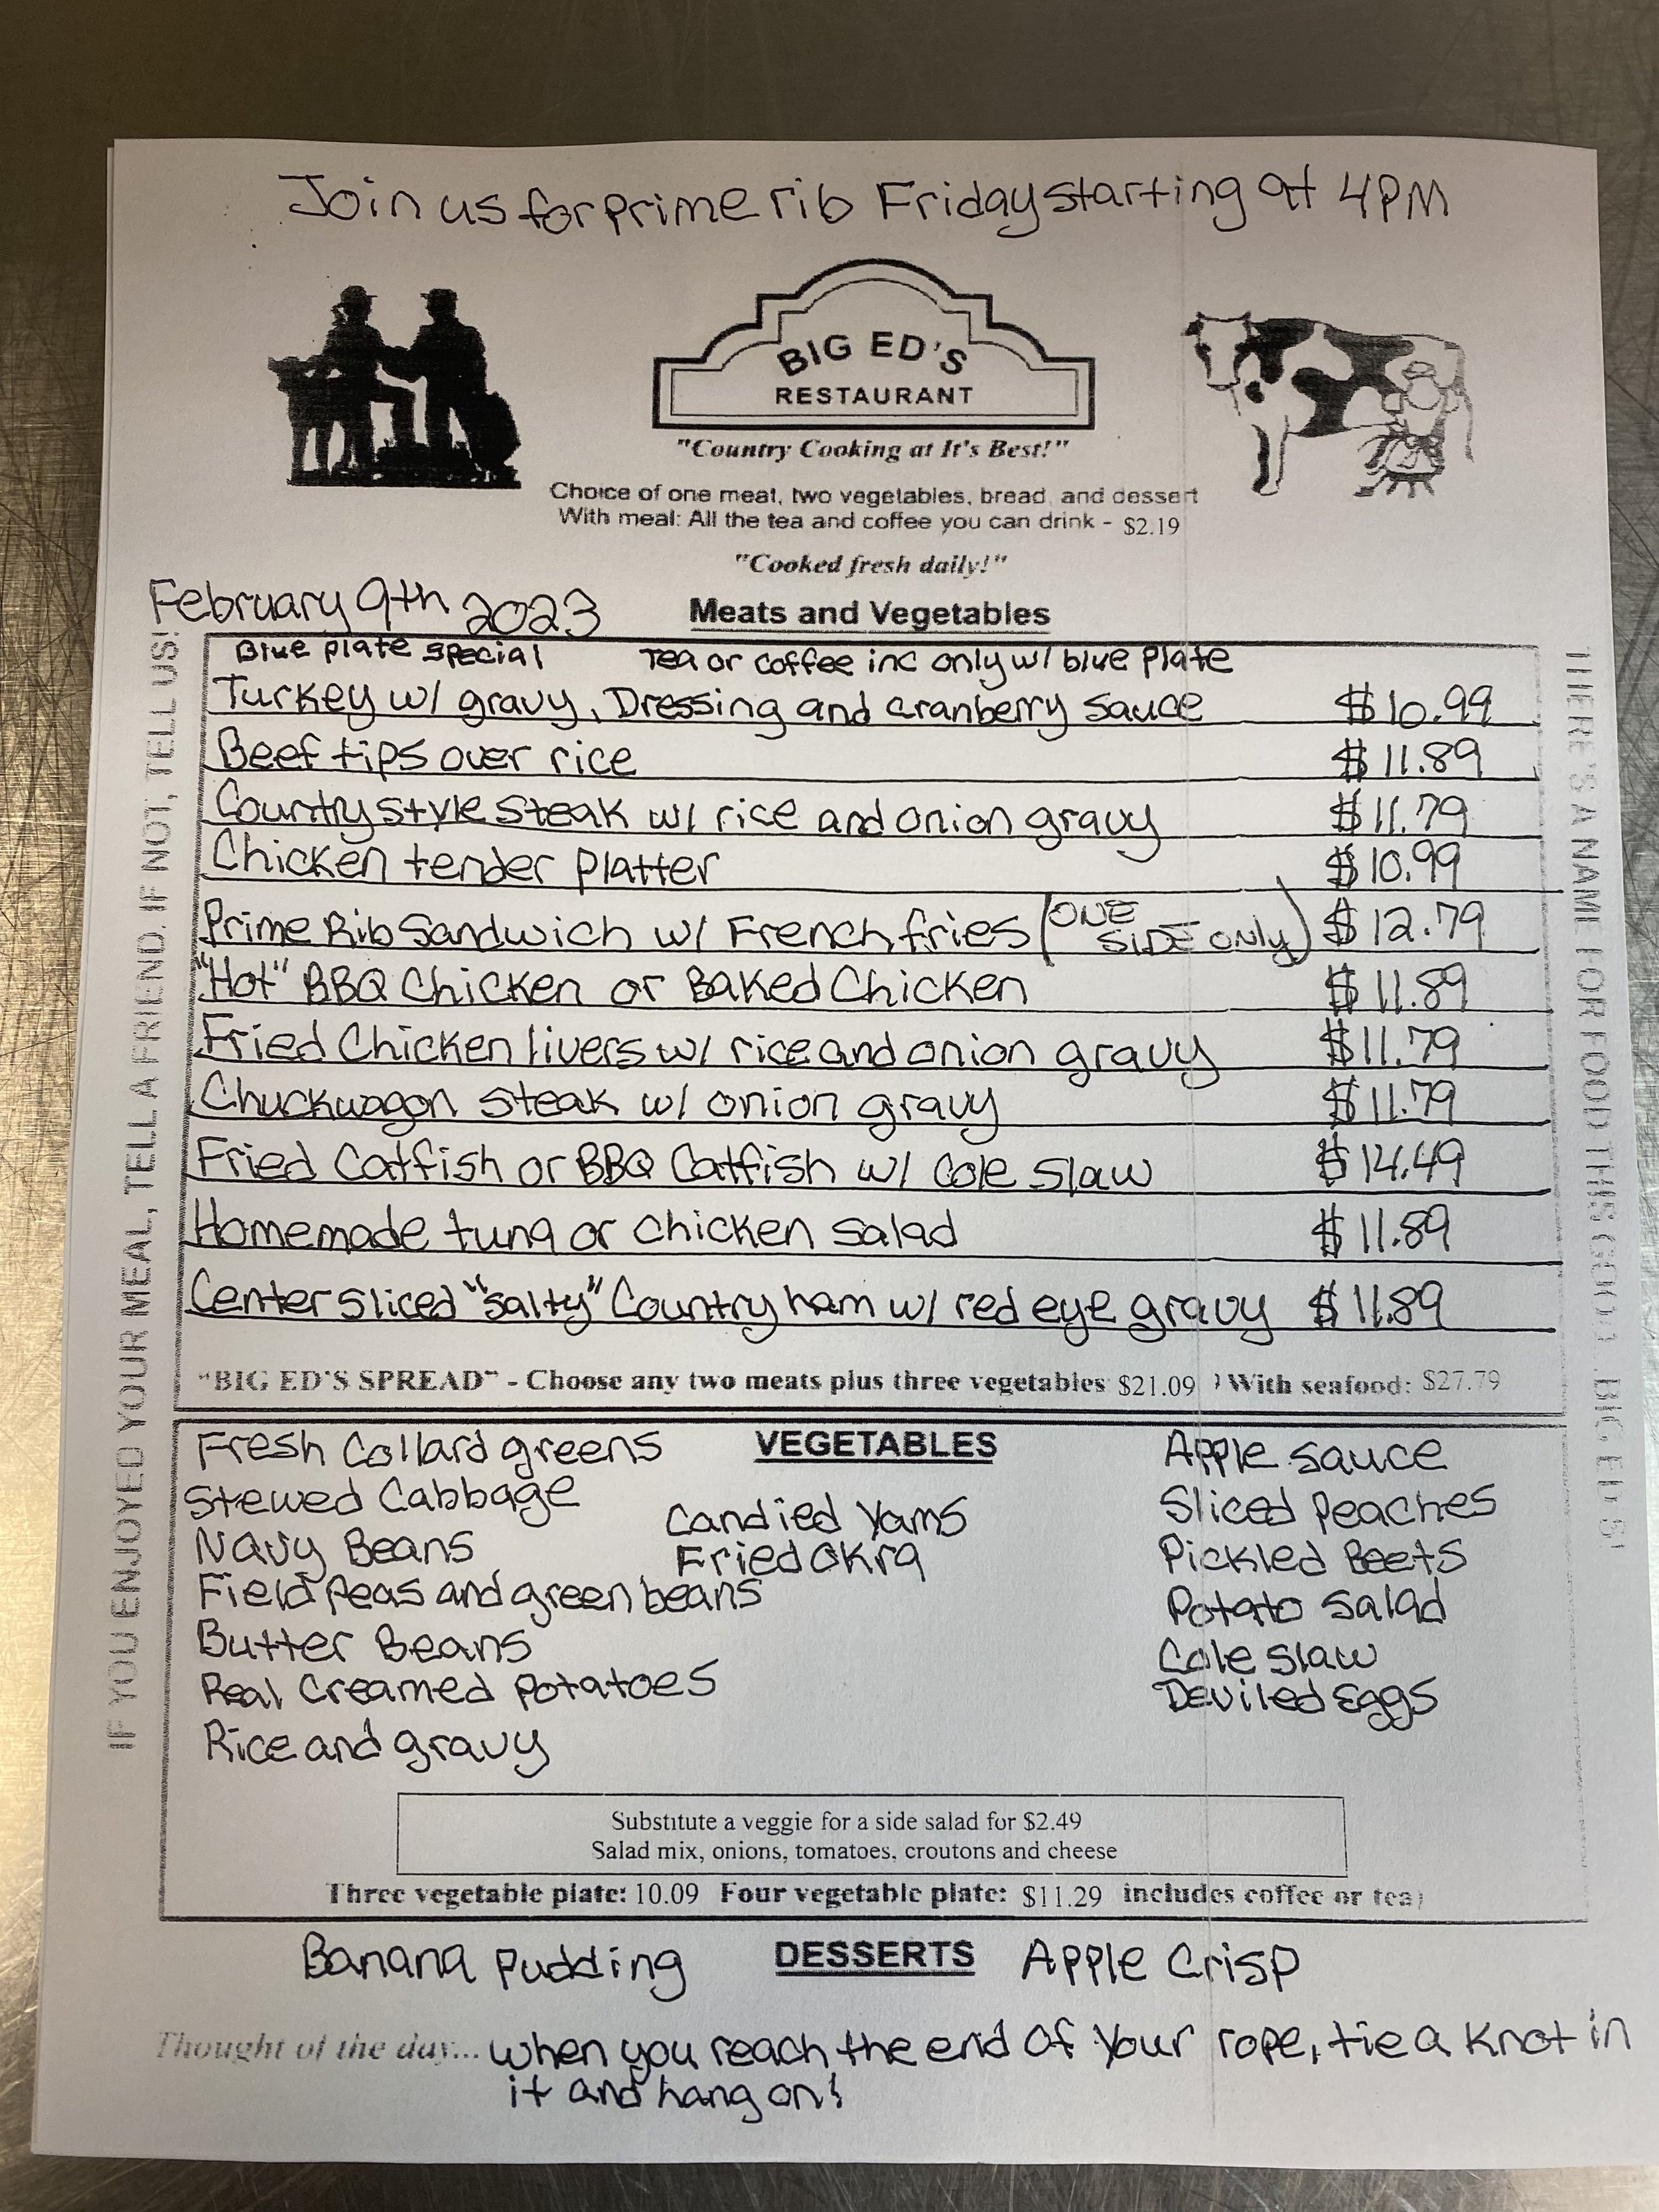 Join us for prime rib Friday starting at 4PM
BIG ED'S
RESTAURANT
"Country Cooking at It's Best!"
Choice of one meat, two vegetables, bread, and dessert
With meal: All the tea and coffee you can drink - $2.19
"Cooked fresh daily!"
February 9th 2023
Meats and Vegetables
Blue plate special Tea or coffee inc only w/ blue plate
Turkey w/ gravy, Dressing and cranberry sauce $10.99
Beef tips over rice $11.89
Country style steak w/ rice and onion gravy $11.79
Chicken tender platter $10.99
Prime Rib Sandwich w/ French fries (ONE SIDE only) $12.79
"Hot" BBQ Chicken or Baked Chicken $11.89
Fried Chicken livers w/ rice and onion gravy $11.79
Chuckwagon steak w/ onion gravy $11.79
Fried Catfish or BBQ Catfish w/ Cole slaw $14.49
Homemade tuna or chicken salad $11.89
Center sliced "salty" Country ham w/ red eye gravy $11.89
"BIG ED'S SPREAD" - Choose any two meats plus three vegetables $21.09 ) With seafood: $27.79
VEGETABLES
Fresh Collard greens
Stewed Cabbage
Navy Beans
Field Peas and green beans
Butter Beans
Real Creamed Potatoes
Rice and gravy
Candied Yams
Fried Okra
Apple sauce
Sliced Peaches
Pickled Beets
Potato Salad
Cole slaw
Deviled Eggs
Substitute a veggie for a side salad for $2.49
Salad mix, onions, tomatoes, croutons and cheese
Three vegetable plate: 10.09 Four vegetable plate: $11.29 includes coffee or tea)
DESSERTS
Banana Pudding
Apple Crisp
Thought of the day... when you reach the end of your rope, tie a knot in
it and hang on!
IF YOU ENJOYED YOUR MEAL, TELL A FRIEND. IF NOT, TELL US!
THERE'S A NAME FOR FOOD THIS GOOD...BIG ED'S!